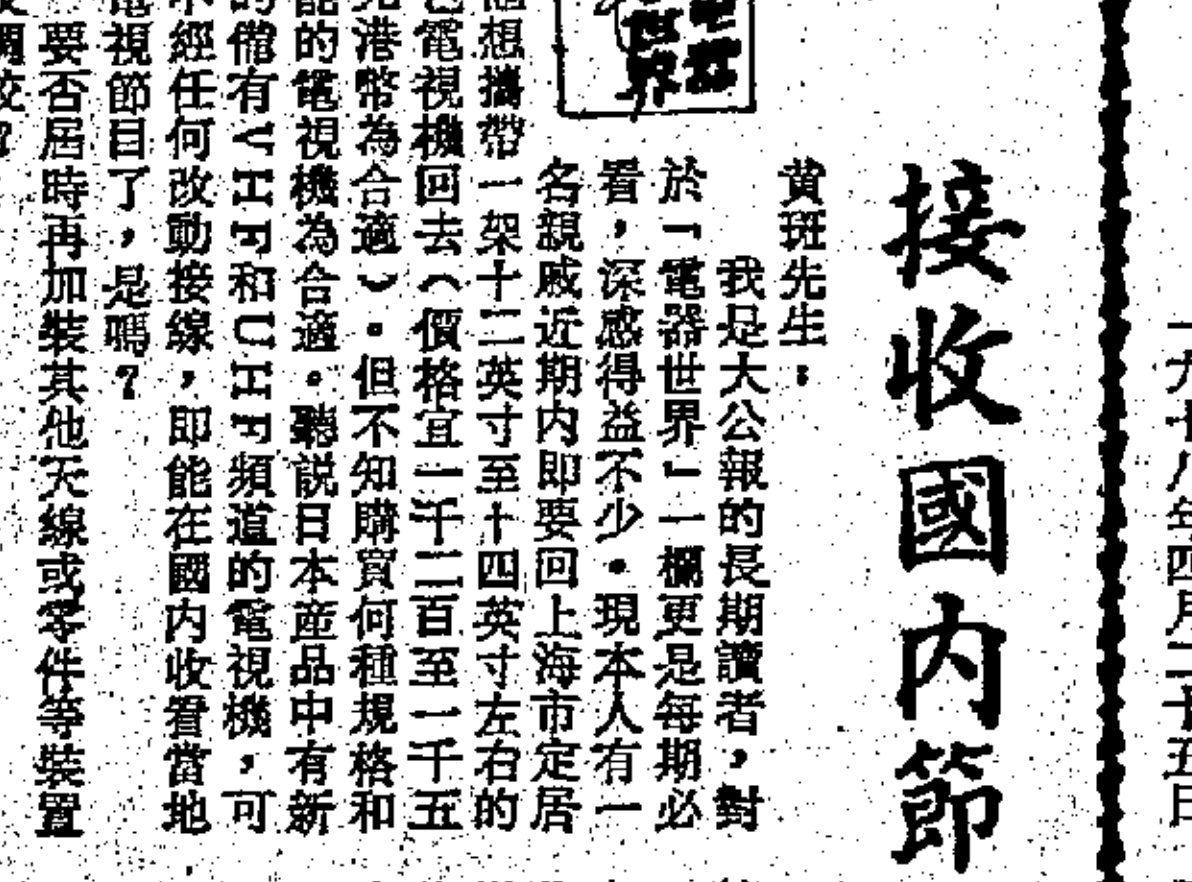 一九七八年四月二十五日
接收國內節
黄斑先生：
我是大公報的長期讀者，對
於「電器世界」一欄更是每期必
看，深感得益不少。現本人有一
名親戚近期内即要回上海市定居
想攜帶一架十二英寸至十四英寸左右的
電視機回去（價格宜一千二百至一千五
港幣為合適）。但不知購買何種規格和
的電視機為合適。聽説日本産品中有新
備有VHF和UHF頻道的電視機，可
經任何改動接線，即能在國内收看當地
視節目了，是嗎？
要否居時再加裝其他天線或零件等裝置